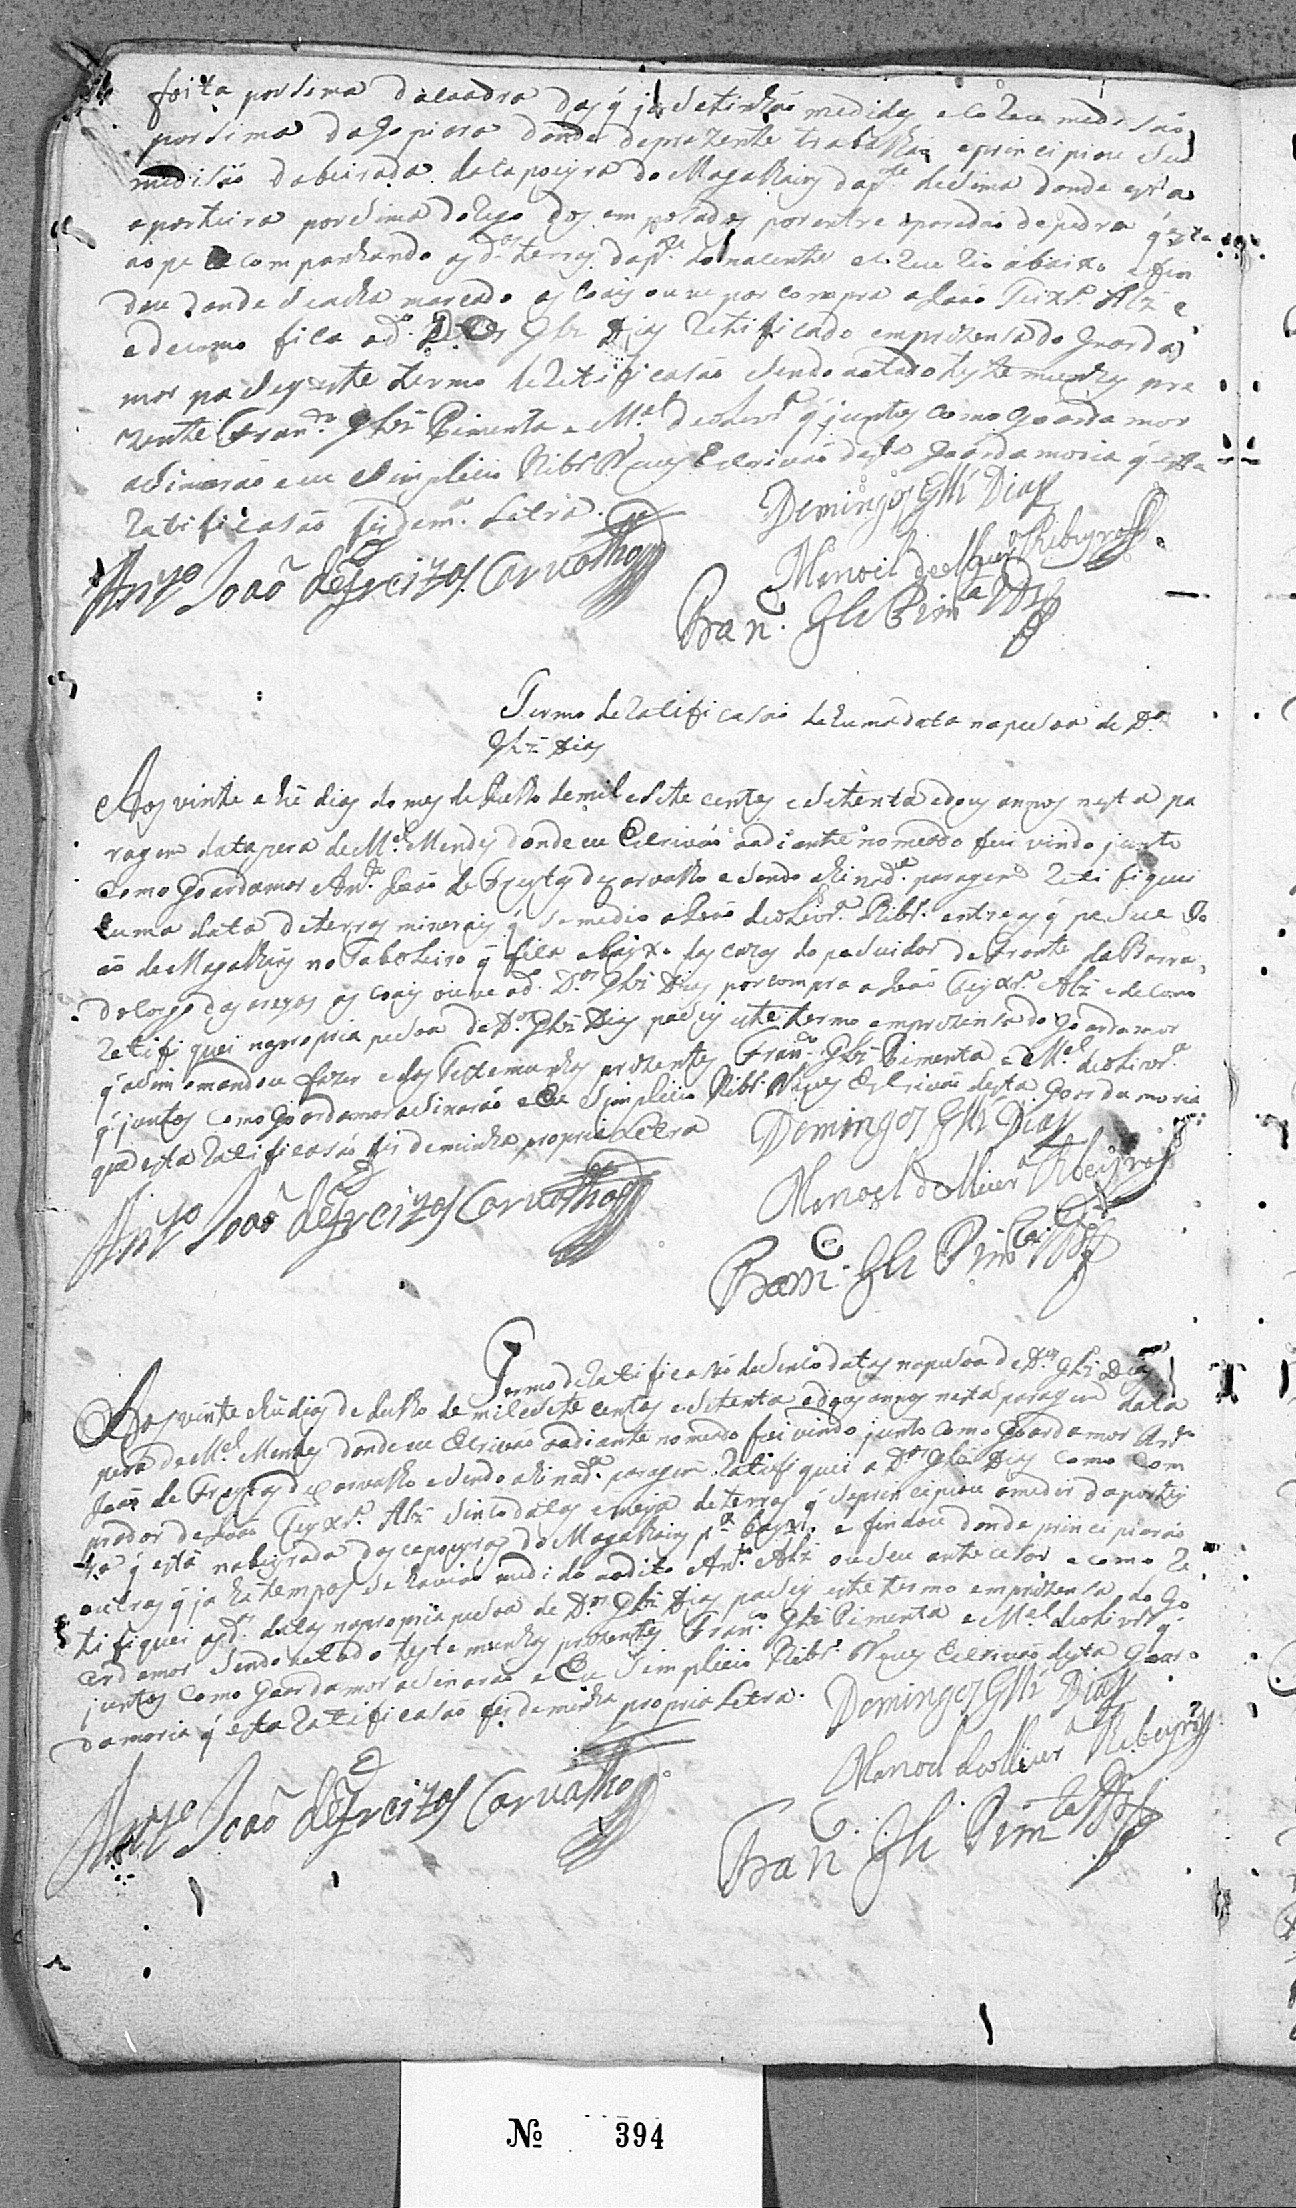 feita por sima da coadra das q̃ ja se tinhaõ medidas e corre medisaõ
por sima da gopiara donde de prezente trabalhaõ e principiou sua
medisaõ da beirada da capoeyra do Magalhais da p.te de sima donde esta
a porteira por sima do rego dos em por entre o paredaõ de pedra q̃
ao pe acompanhando as d.as terras da p.te do nacente e corre rio abaixo e fin
dou donde se acha marcado as coais ouve por compra a Joaõ Teix.ra Alz̃ e
e de como fica o d.o D.os Glz̃ Dias retificado em prezensa do Guarda
mor pasey este termo de retificasaõ sendo a tudo testemunhas pre
zente Fran.co Glz̃ Pimenta e M.el de olivr.a q̃ juntos com o goarda mor
asinaraõ e eu Simplicio Ribr.o Neves Escrivaõ desta goardamoria q̃ esta
ratificasaõ fis de m.a Letra.
Domingos Glz̃ Dias
Ant.o Joaõ de Freitas Carvalho
Manoel de oliver.a Ribeyro
Fran.co Glz̃ Pim.ta
Termo de ratificasaõ de huma data na pesoa de D.os
Glz̃ Dias
Aos vinte e hũ dias do mes de Julho de mil e sete centos e setenta e doys annos nesta pa
ragem da tapera de M.el Mendes donde eu Escrivaõ ao diante nomeado fui vindo junto
com o Goardamor Ant.o Joaõ de Freytas de carvalho e sendo ahi na d.a paragem retifiquei
huma data de terras minerais q̃ se medio a Joaõ de olivr.a Ribr.o entre as q̃ pesue Jo
aõ de Magalhais no Taboleiro q̃ fica abayxo das cazas do pesuidor de fronte da Barra
do corgo das areyas as coais ouve o d.o D.os Glz̃ Dias por compra a Joaõ Teyxr.a Alz̃ e de como
retifiquei na propria pesoa de D.os Glz̃ Dias pasey este termo em prezensa do Goardamor
q̃ asim o mandou fazer e das Testemunhas prezentes Fran.co Glz̃ Pimenta e M.el de olivr.a
q̃ juntos com o Goardamor asinaraõ e Eu Simplicio Ribr.o Neves Escrivaõ desta Goardamoria
que esta ratificasaõ fis de minha propria Letra
Domingos Glz̃ Dias
Ant.o Joaõ de Freitas Carvalho
Manoel de oliver.a Ribeyro
Fran.co Glz̃ Pim.ta
Termo de ratificasaõ de sinco datas na pesoa de D.os Glz̃ Dias
Aos vinte e hũ dias de Julho de mil e sete centos e setenta e doys annos nesta paragem da ta
pera de M.el Mendes donde eu Escrivaõ ao diante nomeado fui vindo junto com o Goardamor Ant.o
Joaõ de Freytas de Carvalho e sendo ahi na d.a paragem ratifiquei a D.os Glz̃ Dias como com
prador de Joaõ Teyxr.a Alz̃ sinco datas e meya de terras q̃ se principiou a medir da portey
ra q̃ està na beyrada das capoeyras do Magalhais p.a bayxo e findou donde principiaraõ
outras q̃ ja ha tempos se haviaõ medido ao dito Ant.o Alz̃ ou seu antecesor e como re
tifiquei as d.as datas na propria pesoa de D.os Glz̃ Dias pasey este termo em prezensa do Go
ardamor sendo a tudo testemunhas prezentes Fran.co Glz̃ Pimenta e M.el de olivr.a q̃
juntos com o Goardamor asinaraõ e Eu Simplicio Ribr.o Neves Escrivaõ desta Goar
damoria q̃ esta ratificasaõ fis de minha propria Letra.
Domingos Glz̃ Dias
Ant.o Joaõ de Freitas Carvalho
Manoel de oliver.a Ribeyro
Fran.co Glz̃ Pim.ta
№ 394